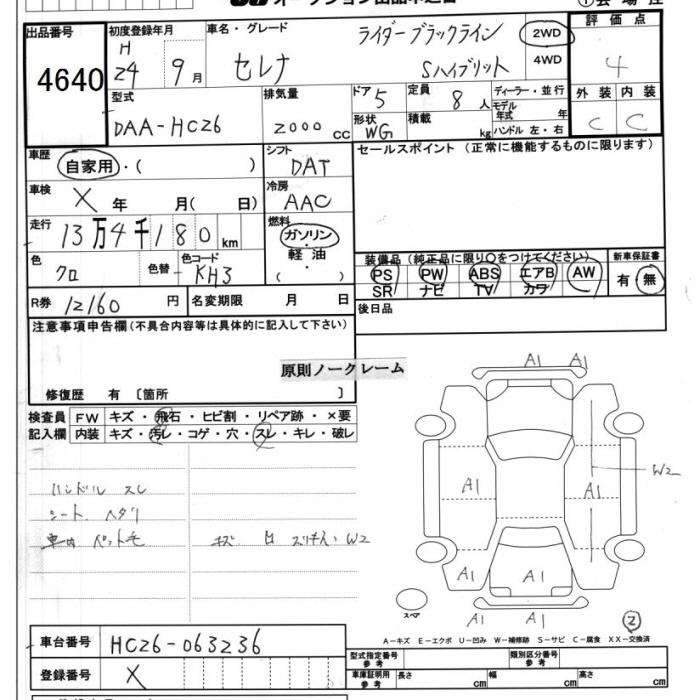 出品番号 初度登録年月 車名・グレード ライダーブラックライン 2WD 評価点
4640 H 24 9月 セレナ Sハイブリット 4WD 4
型式 排気量 ドア 5 定員 8人 ディーラー・並行 外装 内装
DAA-HC26 2000cc 形状 WG 積載 kg モデル年式 年 ハンドル 左・右 C C
車歴 自家用・( ) シフト DAT セールスポイント (正常に機能するものに限ります)
車検 X年 月( 日) 冷房 AAC
走行 13万4千180km 燃料 ガソリン・軽油・( )
色 クロ 色替 色コード KH3 装備品 (純正品に限り○をつけてください) 新車保証書
PS PW ABS エアB AW 有・無
SR ナビ TV カワ
R券 12160円 名変期限 月 日 後日品
注意事項申告欄(不具合内容等は具体的に記入して下さい)
原則ノークレーム
修復歴 有 〔箇所 〕
検査員記入欄 FW キズ・飛石・ヒビ割・リペア跡・×要
内装 キズ・汚レ・コゲ・穴・スレ・キレ・破レ
ハンドル スレ
シート ヘタリ
車内 ペット毛 キズ W2
A1 A1
W2
A1 A1
A1 A1
スペア A1 A1
2
A-キズ E-エクボ U-凹み W-補修跡 S-サビ C-腐食 XX-交換済
車台番号 HC26-063236
型式指定番号 参考 類別区分番号 参考
登録番号 X 車庫証明用 参考 長さ cm 幅 cm 高さ cm